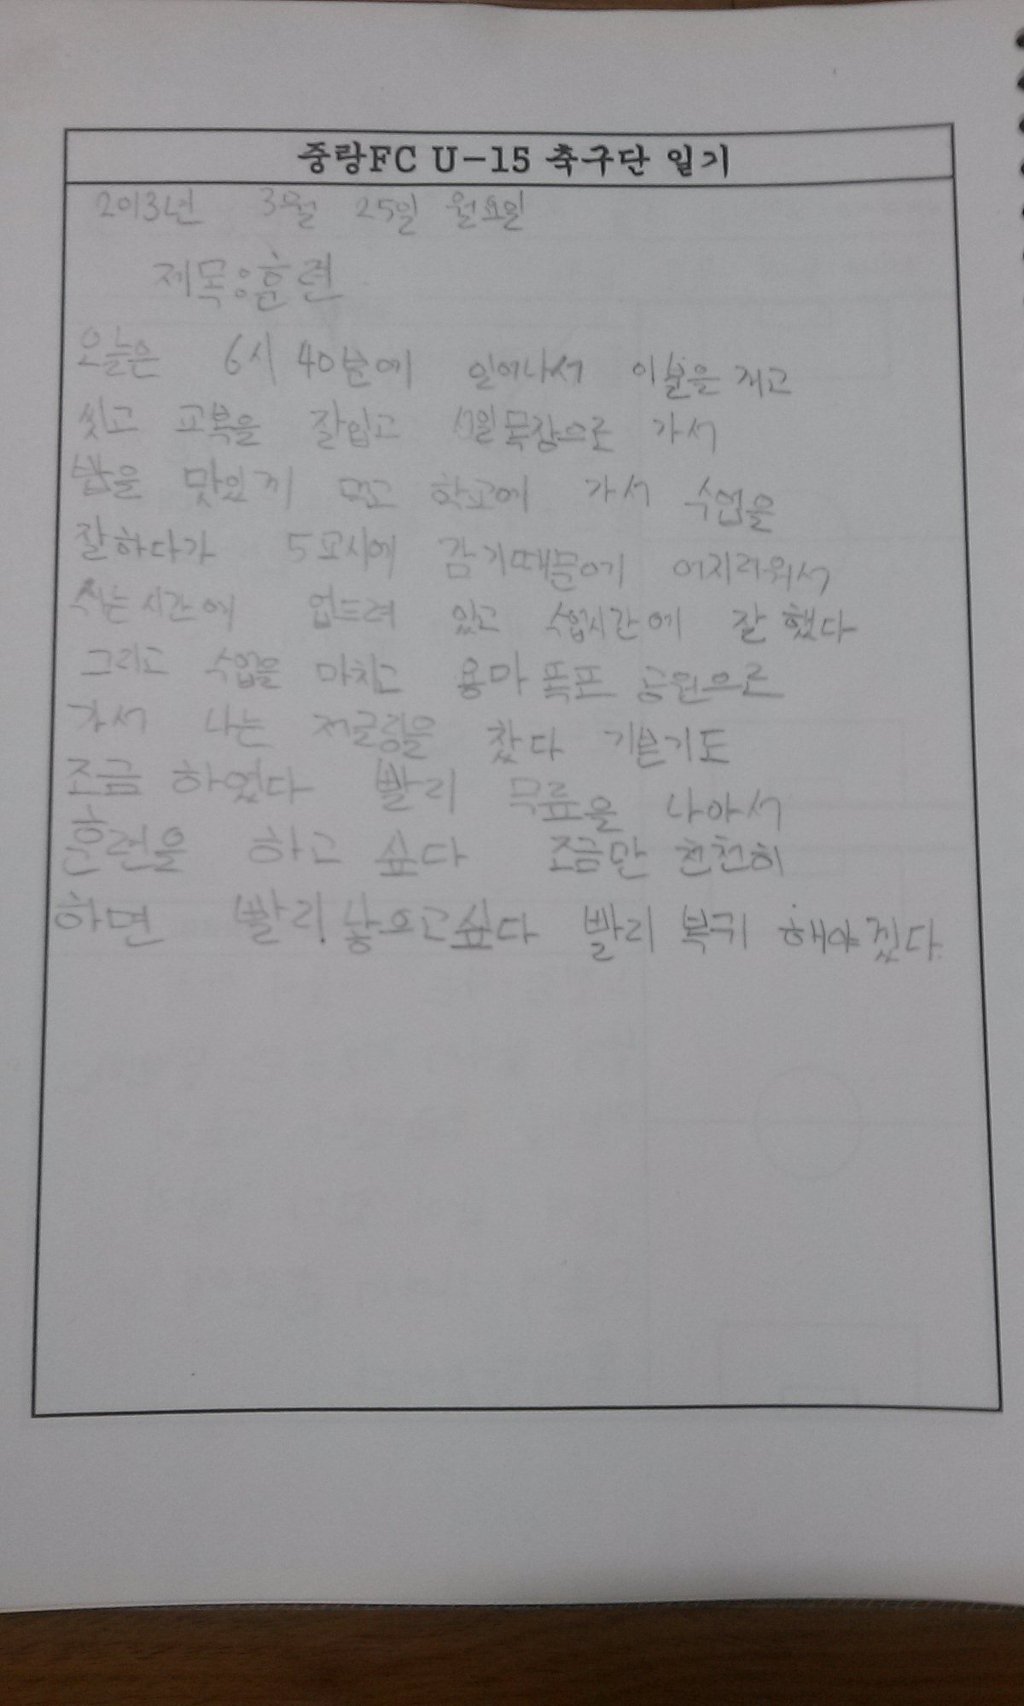 중랑FC U-15 축구단 일기
2013년 3월 25일 월요일
제목:훈련
오늘은 6시 40분에 일어나서 이불을 개고
씻고 교복을 잘입고 목장으로 가서
밥을 맛있게 먹고 학교에 가서 수업을
잘하다가 5교시에 감기때문에 어지러워서
쉬는시간에 업드려 있고 수업시간에 잘 했다
그리고 수업을 마치고 용마 폭포 공원으로
가서 나는 저글링을 찼다 기본기도
조금 하였다 빨리 무릎을 나아서
훈련을 하고 싶다 조금만 천천히
하면 빨리 낳으고싶다 빨리 복귀 해야겠다.